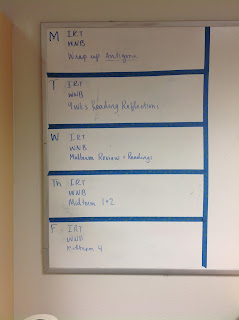 M IRT
WNB
Wrap up Antigone
T IRT
WNB
9wks Reading Reflections
W IRT
WNB
Midterm Review + Readings
Th IRT
WNB
Midterm 1+2
F IRT
WNB
Midterm 4